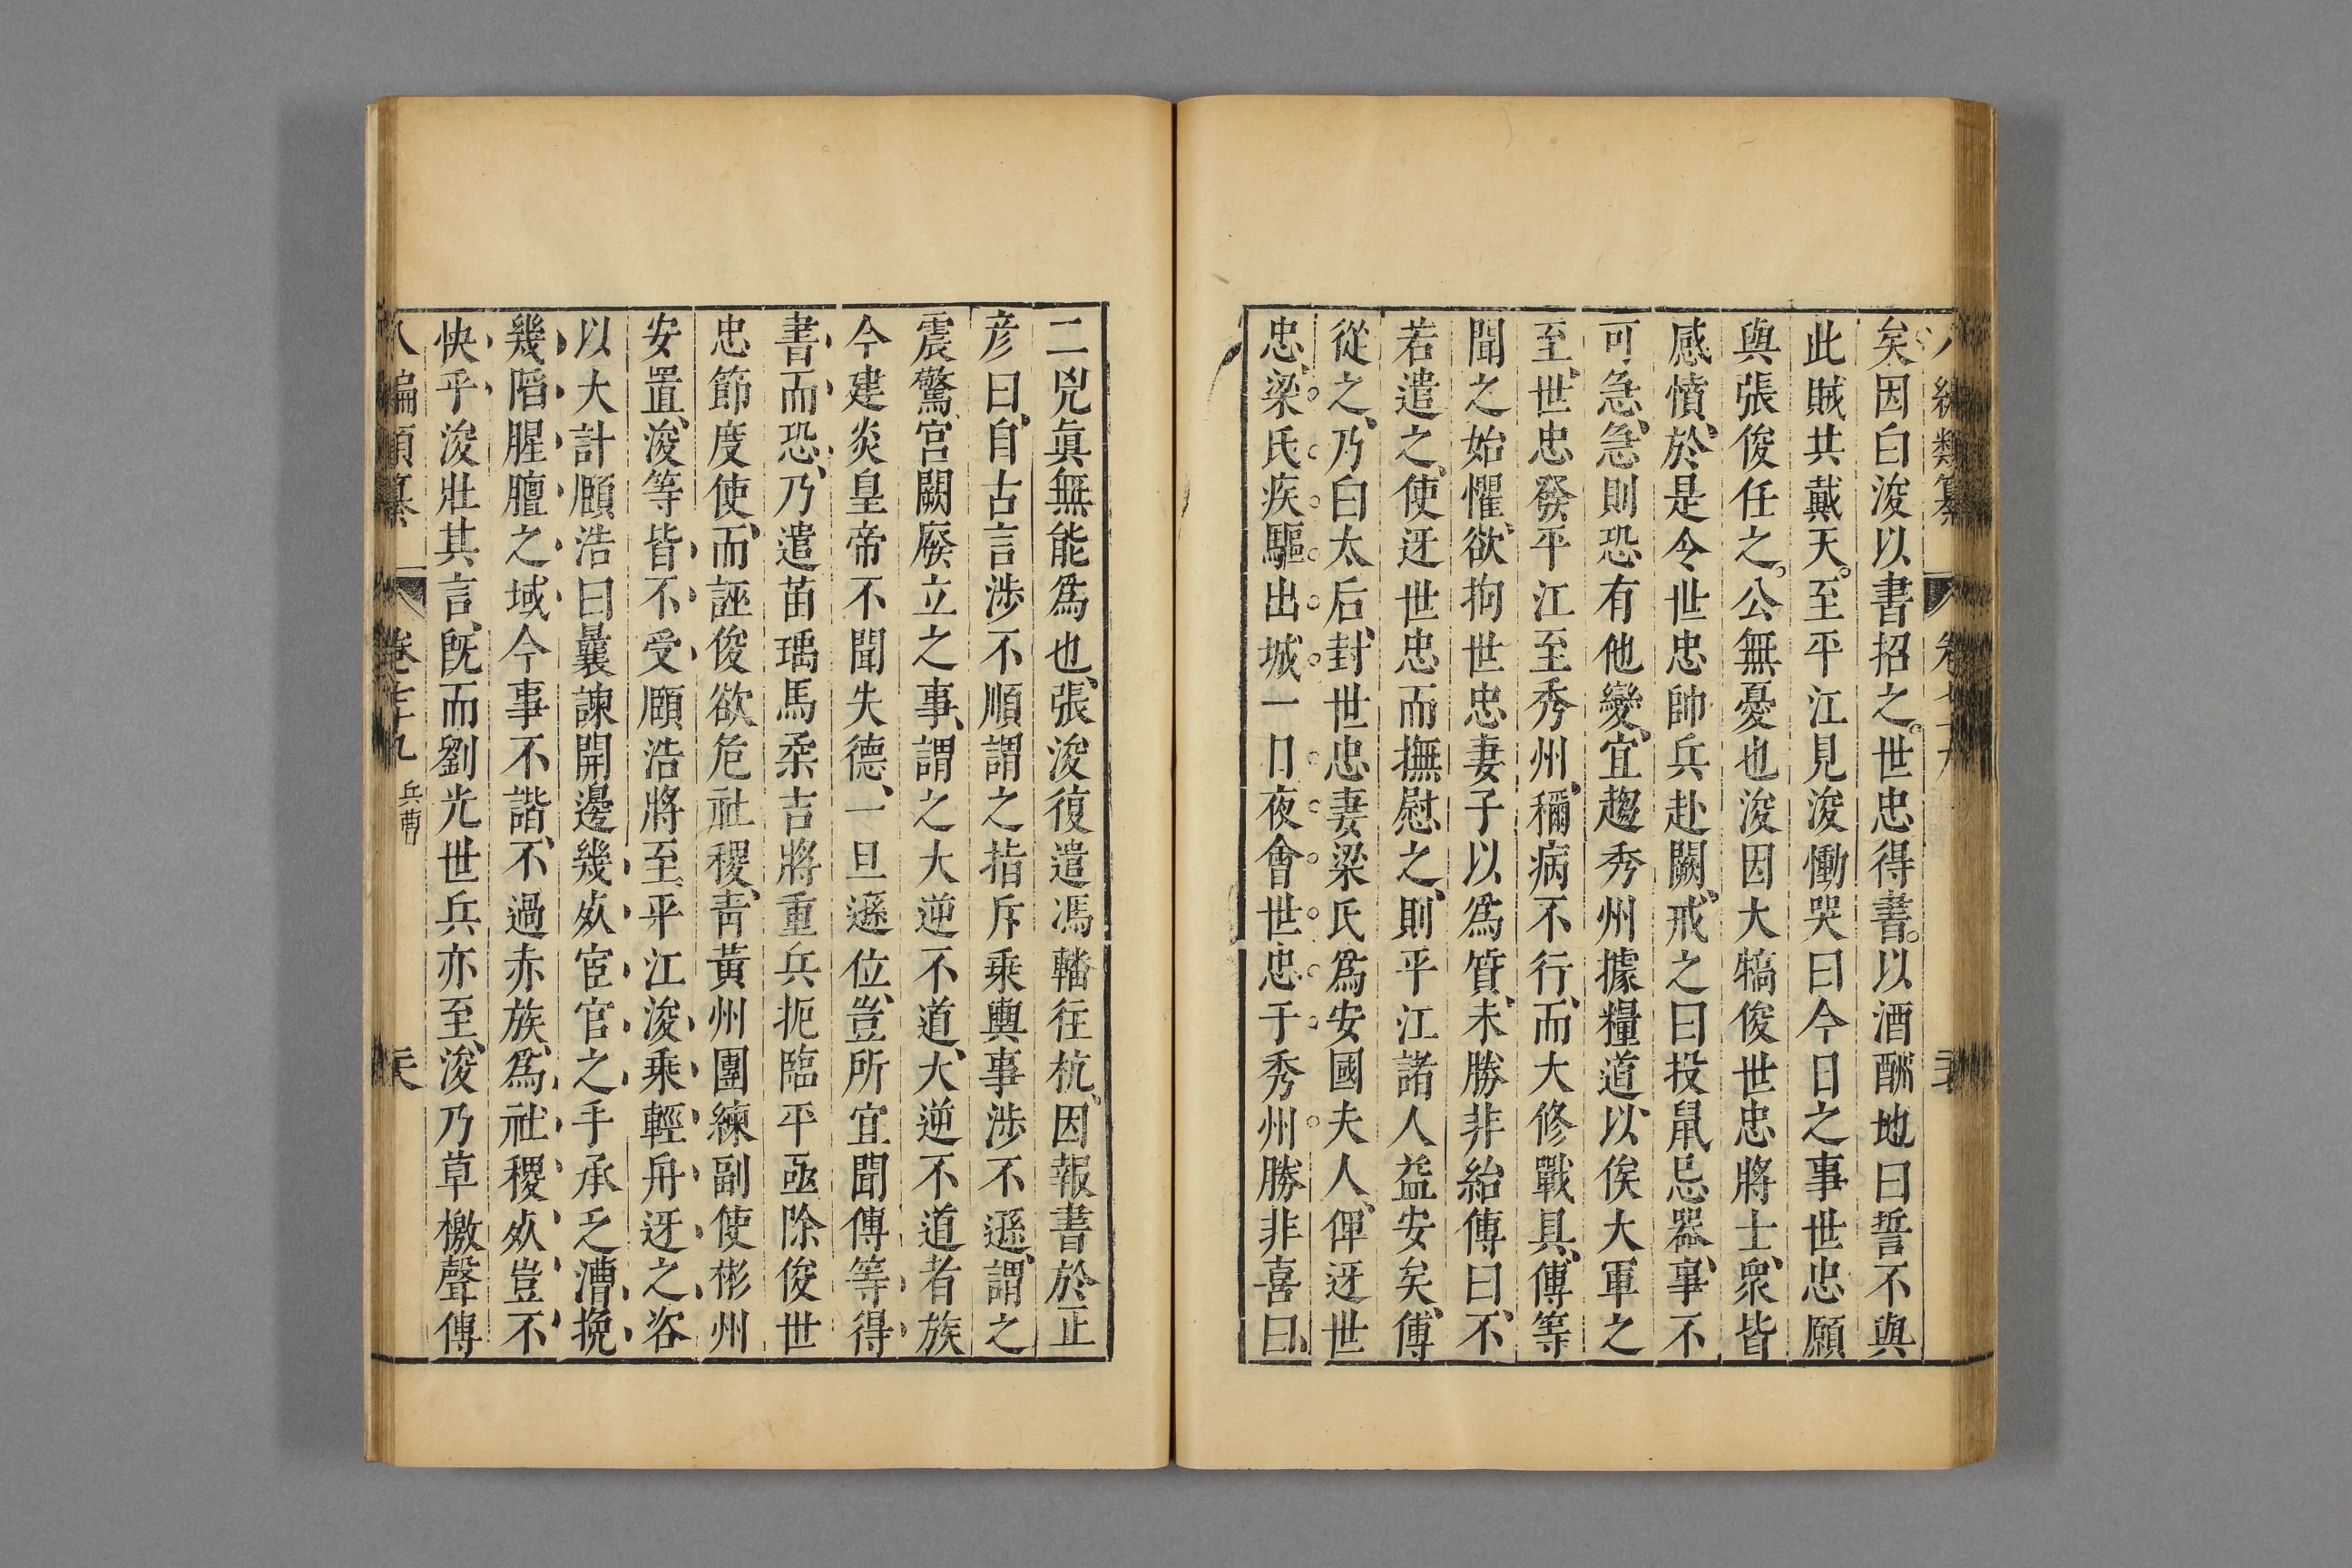 矣因白浚以書招之世忠得書以酒酬地曰誓不與
此賊共戴天至平江見浚慟哭曰今日之事世忠願
與張俊任之公無憂也浚因大犒俊世忠將士衆皆
感憤於是令世忠帥兵赴闕戒之曰投鼠忌器事不
可急急則恐有他變宜趨秀州據糧道以俟大軍之
至世忠發平江至秀州稱病不行而大修戰具傅等
聞之始懼欲拘世忠妻子以爲質朱勝非紿傅曰不
若遣之使迓世忠而撫慰之則平江諸人益安矣傅
從之乃白太后封世忠妻梁氏爲安國夫人俾迓世
忠梁氏疾驅出城一日夜會世忠于秀州勝非喜曰
二兇眞無能爲也張浚復遣馮轓往杭因報書於正
彥曰自古言涉不順謂之指斥乘輿事涉不遜謂之
震驚宮闕廢立之事謂之大逆不道大逆不道者族
今建炎皇帝不聞失德一旦遜位豈所宜聞傅等得
書而恐乃遣苗瑀馬柔吉將重兵扼臨平亟除俊世
忠節度使而誣俊欲危社稷責黃州團練副使彬州
安置浚等皆不受頤浩將至平江浚乘輕舟迓之咨
以大計頤浩曰曩諫開邊幾死宦官之手承乏漕挽
幾陷腥膻之域今事不諧不過赤族爲社稷死豈不
快乎浚壯其言旣而劉光世兵亦至浚乃草檄聲傅
八編類纂 卷七十九 兵曹